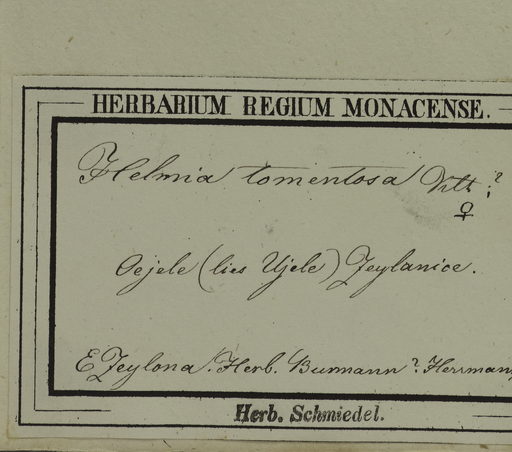 HERBARIUM REGIUM MONACENSE.
Helmia tomentosa ?
♀
Oejele (lies Ujele) Zeylanice.
E Zeylona. Herb. Burmann? Herrmann
Herb. Schmiedel.